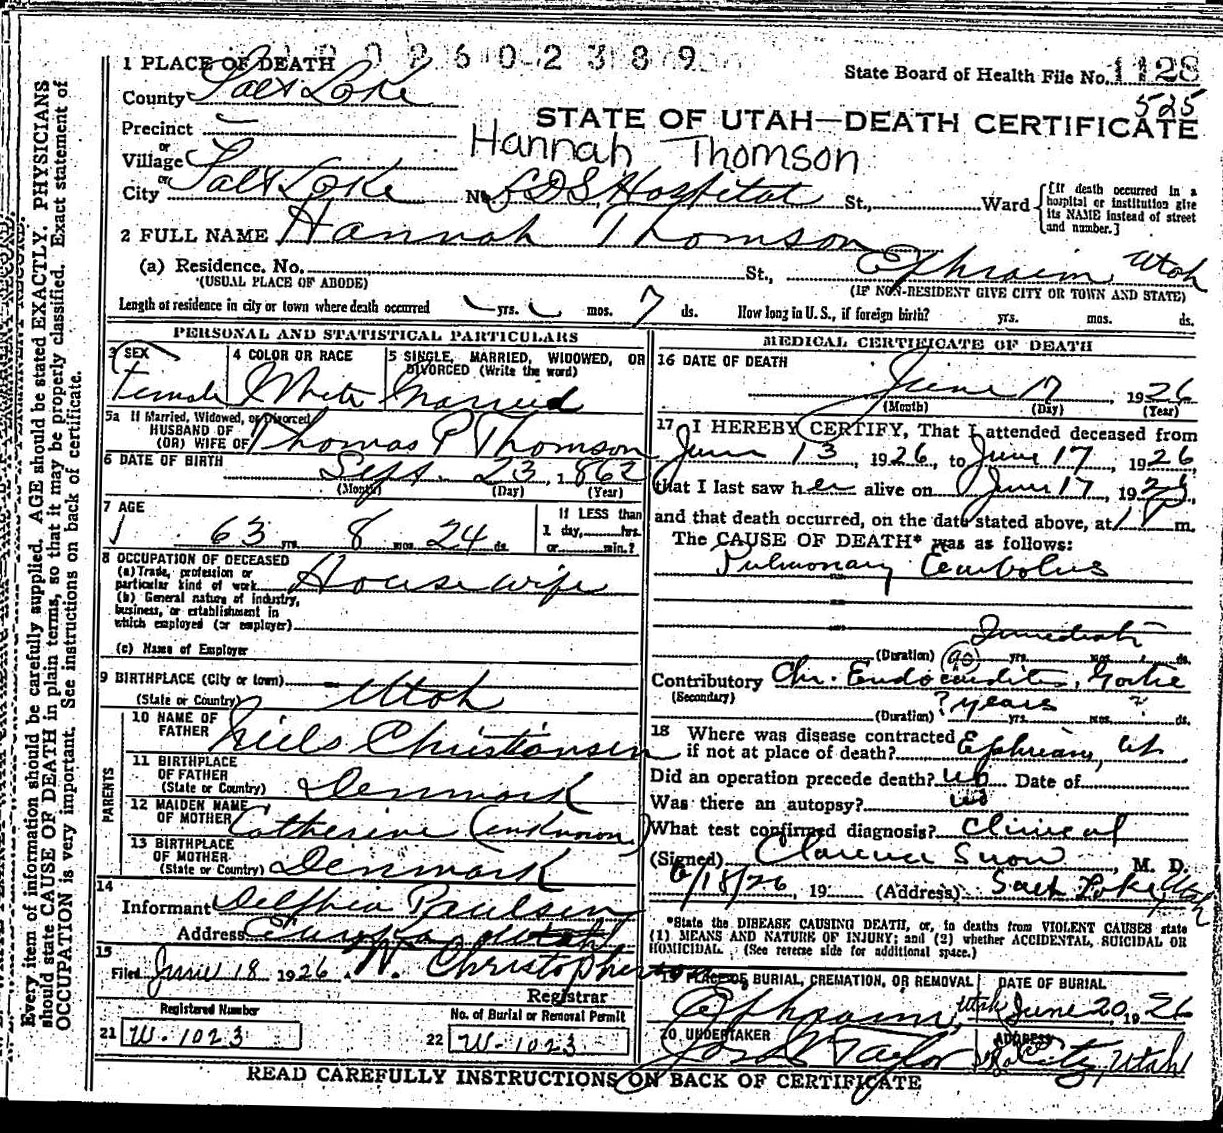 2 6 0 2 3 8 9
1 PLACE OF DEATH
State Board of Health File No. 1128
County Salt Lake
525
STATE OF UTAH—DEATH CERTIFICATE
Precinct
or
Hannah Thomson
Village
or
City Salt Lake No. LDS Hospital St., Ward
{[If death occurred in a hospital or institution give its NAME instead of street and number.]
2 FULL NAME Hannah Thomson
(a) Residence. No. St., Ephraim, Utah
(USUAL PLACE OF ABODE) (IF NON-RESIDENT GIVE CITY OR TOWN AND STATE)
Length of residence in city or town where death occurred yrs. mos. 7 ds. How long in U. S., if foreign birth? yrs. mos. ds.
PERSONAL AND STATISTICAL PARTICULARS
3 SEX
Female
4 COLOR OR RACE
White
5 SINGLE, MARRIED, WIDOWED, OR
DIVORCED (Write the word)
Married
5a If Married, Widowed, or Divorced
HUSBAND OF
(OR) WIFE OF Thomas P Thomson
6 DATE OF BIRTH Sept. 23, 1862
(Month) (Day) (Year)
7 AGE
63 yrs. 8 mos. 24 ds.
If LESS than
1 day, hrs.
or min.?
8 OCCUPATION OF DECEASED
(a) Trade, profession or
particular kind of work Housewife
(b) General nature of industry,
business, or establishment in
which employed (or employer)
(c) Name of Employer
9 BIRTHPLACE (City or town)
(State or Country) Utah
PARENTS
10 NAME OF
FATHER Niels Christiansen
11 BIRTHPLACE
OF FATHER
(State or Country) Denmark
12 MAIDEN NAME
OF MOTHER Catherine (unknown)
13 BIRTHPLACE
OF MOTHER
(State or Country) Denmark
14
Informant Paulsen
Address Utah
15
Filed June 18 1926 W. Christopherson
Registrar
Registered Number
21 W-1023
No. of Burial or Removal Permit
22 W-1023
MEDICAL CERTIFICATE OF DEATH
16 DATE OF DEATH
June 17, 1926
(Month) (Day) (Year)
17 I HEREBY CERTIFY, That I attended deceased from
June 13, 1926, to June 17, 1926
that I last saw her alive on June 17, 1926,
and that death occurred, on the date stated above, at 1 P m.
The CAUSE OF DEATH* was as follows:
Pulmonary Embolus
Immediate
(Duration) 90 yrs. mos. ds.
Contributory Chr. Endocarditis, Goitre
(Secondary)
? years ?
(Duration) yrs. mos. ds.
18 Where was disease contracted
if not at place of death? Ephriam, Ut.
Did an operation precede death? no Date of
Was there an autopsy? no
What test confirmed diagnosis? Clinical
(Signed) Clarence Snow, M. D.
6/18/26, 19 (Address) Salt Lake, Utah
*State the DISEASE CAUSING DEATH, or, in deaths from VIOLENT CAUSES state
(1) MEANS AND NATURE OF INJURY; and (2) whether ACCIDENTAL, SUICIDAL OR
HOMICIDAL. (See reverse side for additional space.)
19 PLACE OF BURIAL, CREMATION, OR REMOVAL
Ephraim, Utah
DATE OF BURIAL
June 20, 1926
20 UNDERTAKER
Taylor
ADDRESS
City, Utah
READ CAREFULLY INSTRUCTIONS ON BACK OF CERTIFICATE
Every item of information should be carefully supplied. AGE should be stated EXACTLY. PHYSICIANS
should state CAUSE OF DEATH in plain terms, so that it may be properly classified. Exact statement of
OCCUPATION is very important. See instructions on back of certificate.